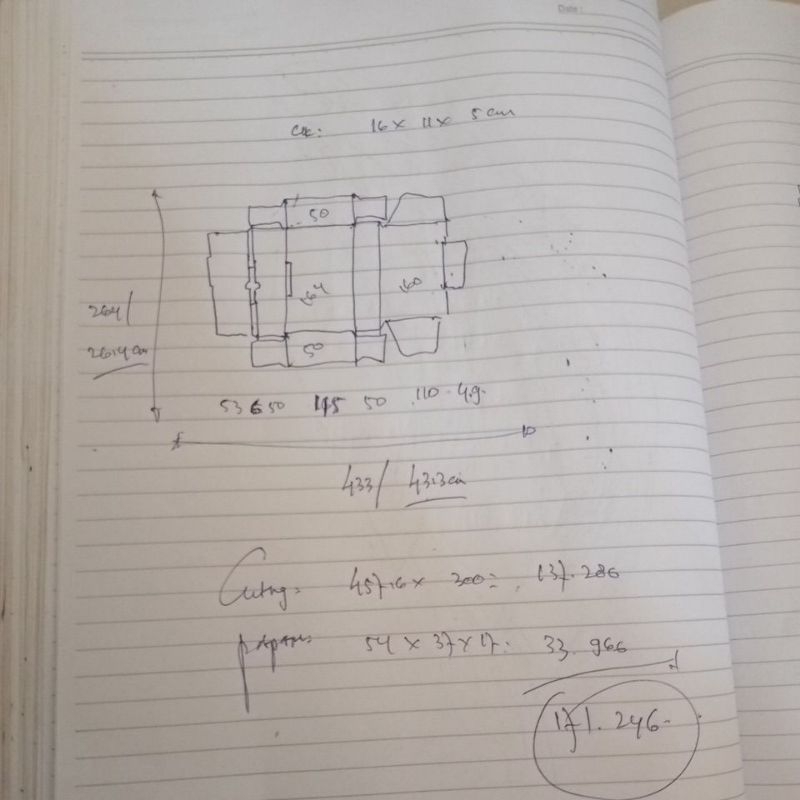 Date :
uk: 16 x 11 x 5 cm
50
164
160
264/
26.4 cm
50
53 6 50 115 50 110 49
433/ 43.3 cm
457.16 x 300 = 137.286
54 x 37 x 17 : 33.966
171.246